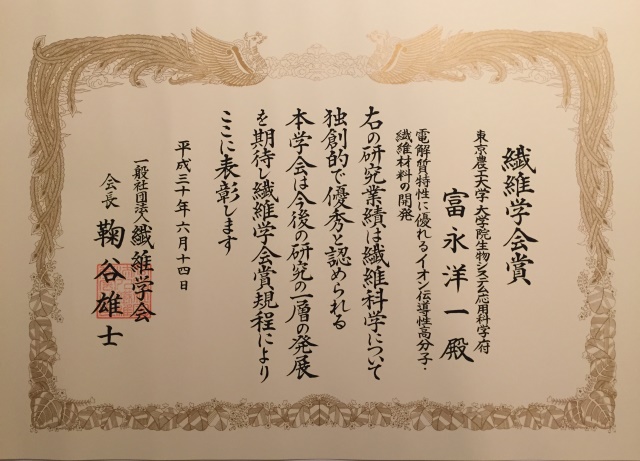 繊維学会賞
東京農工大学大学院生物システム応用科学府
富永洋一殿
電解質特性に優れるイオン伝導性高分子・
繊維材料の開発
右の研究業績は繊維科学について
独創的で優秀と認められる
本学会は今後の研究の一層の発展
を期待し繊維学会賞規程により
ここに表彰します
平成三十年六月十四日
一般社団法人繊維学会
会長 鞠谷雄士